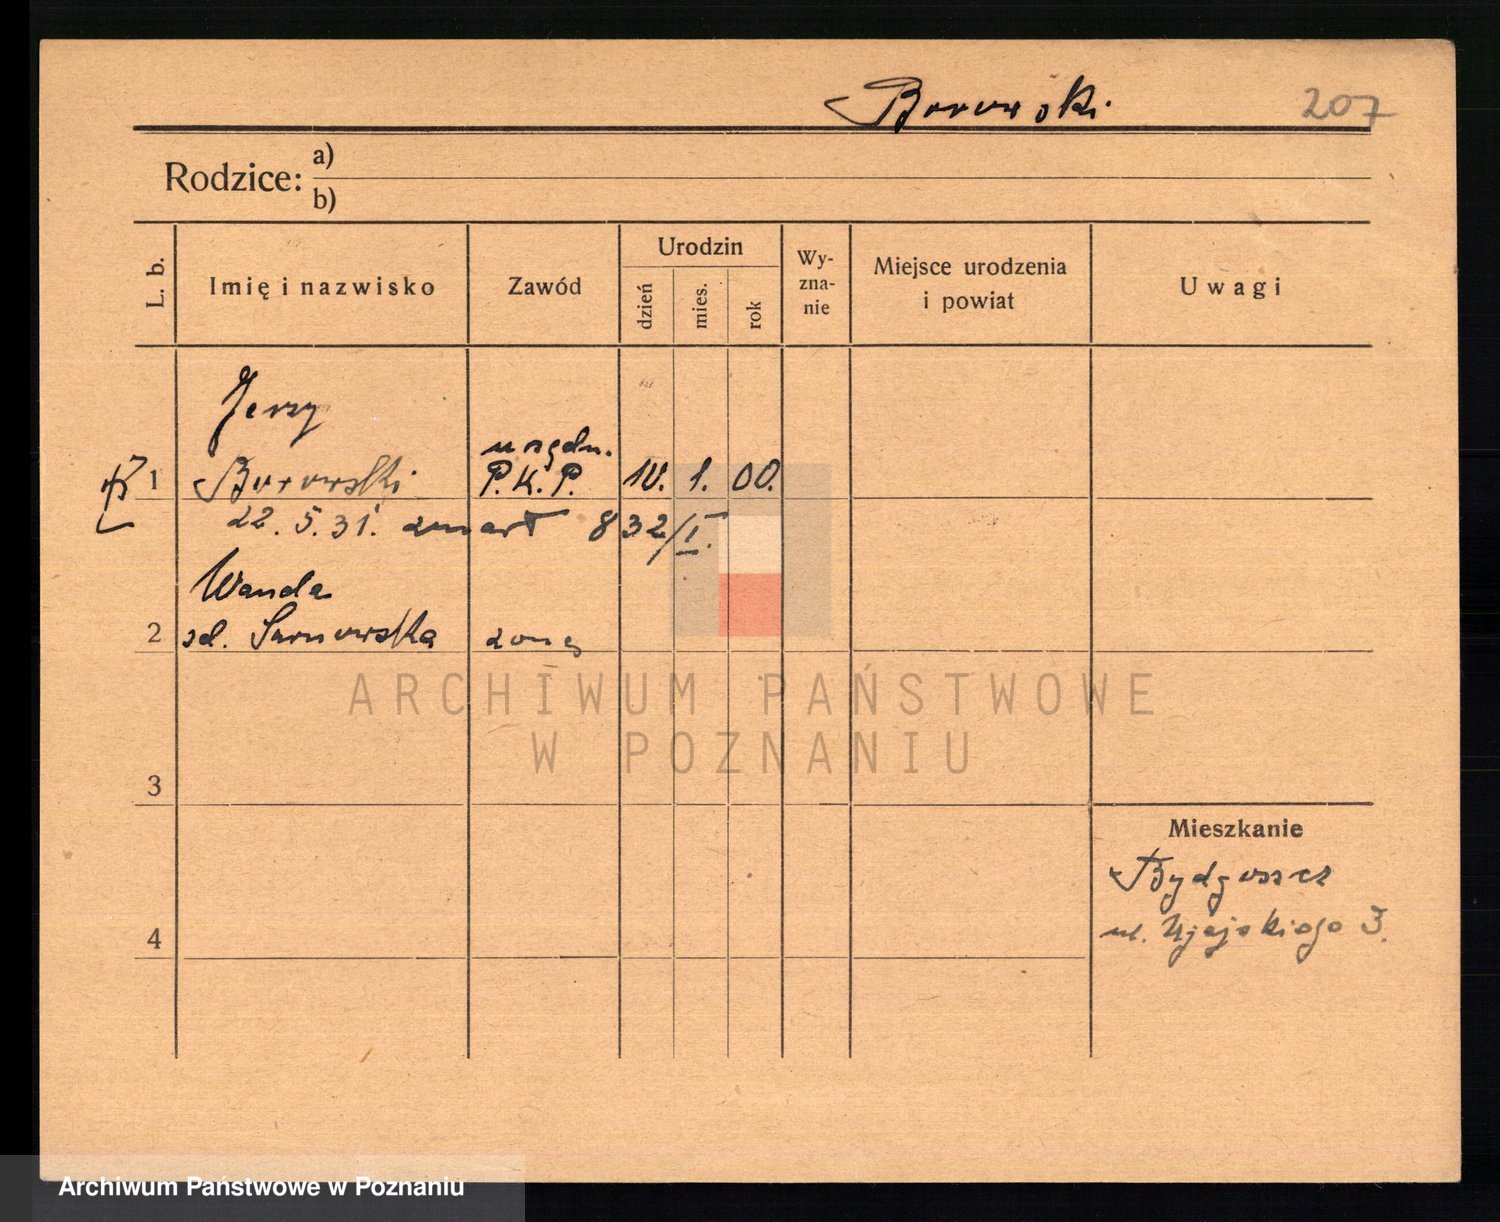 Borowski 207
Rodzice: a)
b)
L. b. Imię i nazwisko Zawód Urodzin dzień mies. rok Wy-zna-nie Miejsce urodzenia i powiat Uwagi
Jerzy
urzędn.
1 Borowski P.K.P. 10. 1. 00.
22. 5. 31. zmarł 832/I.
Wanda
2 zd. Sarnowska żona
ARCHIWUM PAŃSTWOWE
W POZNANIU
3
Mieszkanie
Bydgoszcz
4 ul. Ujejskiego 3.
Archiwum Państwowe w Poznaniu